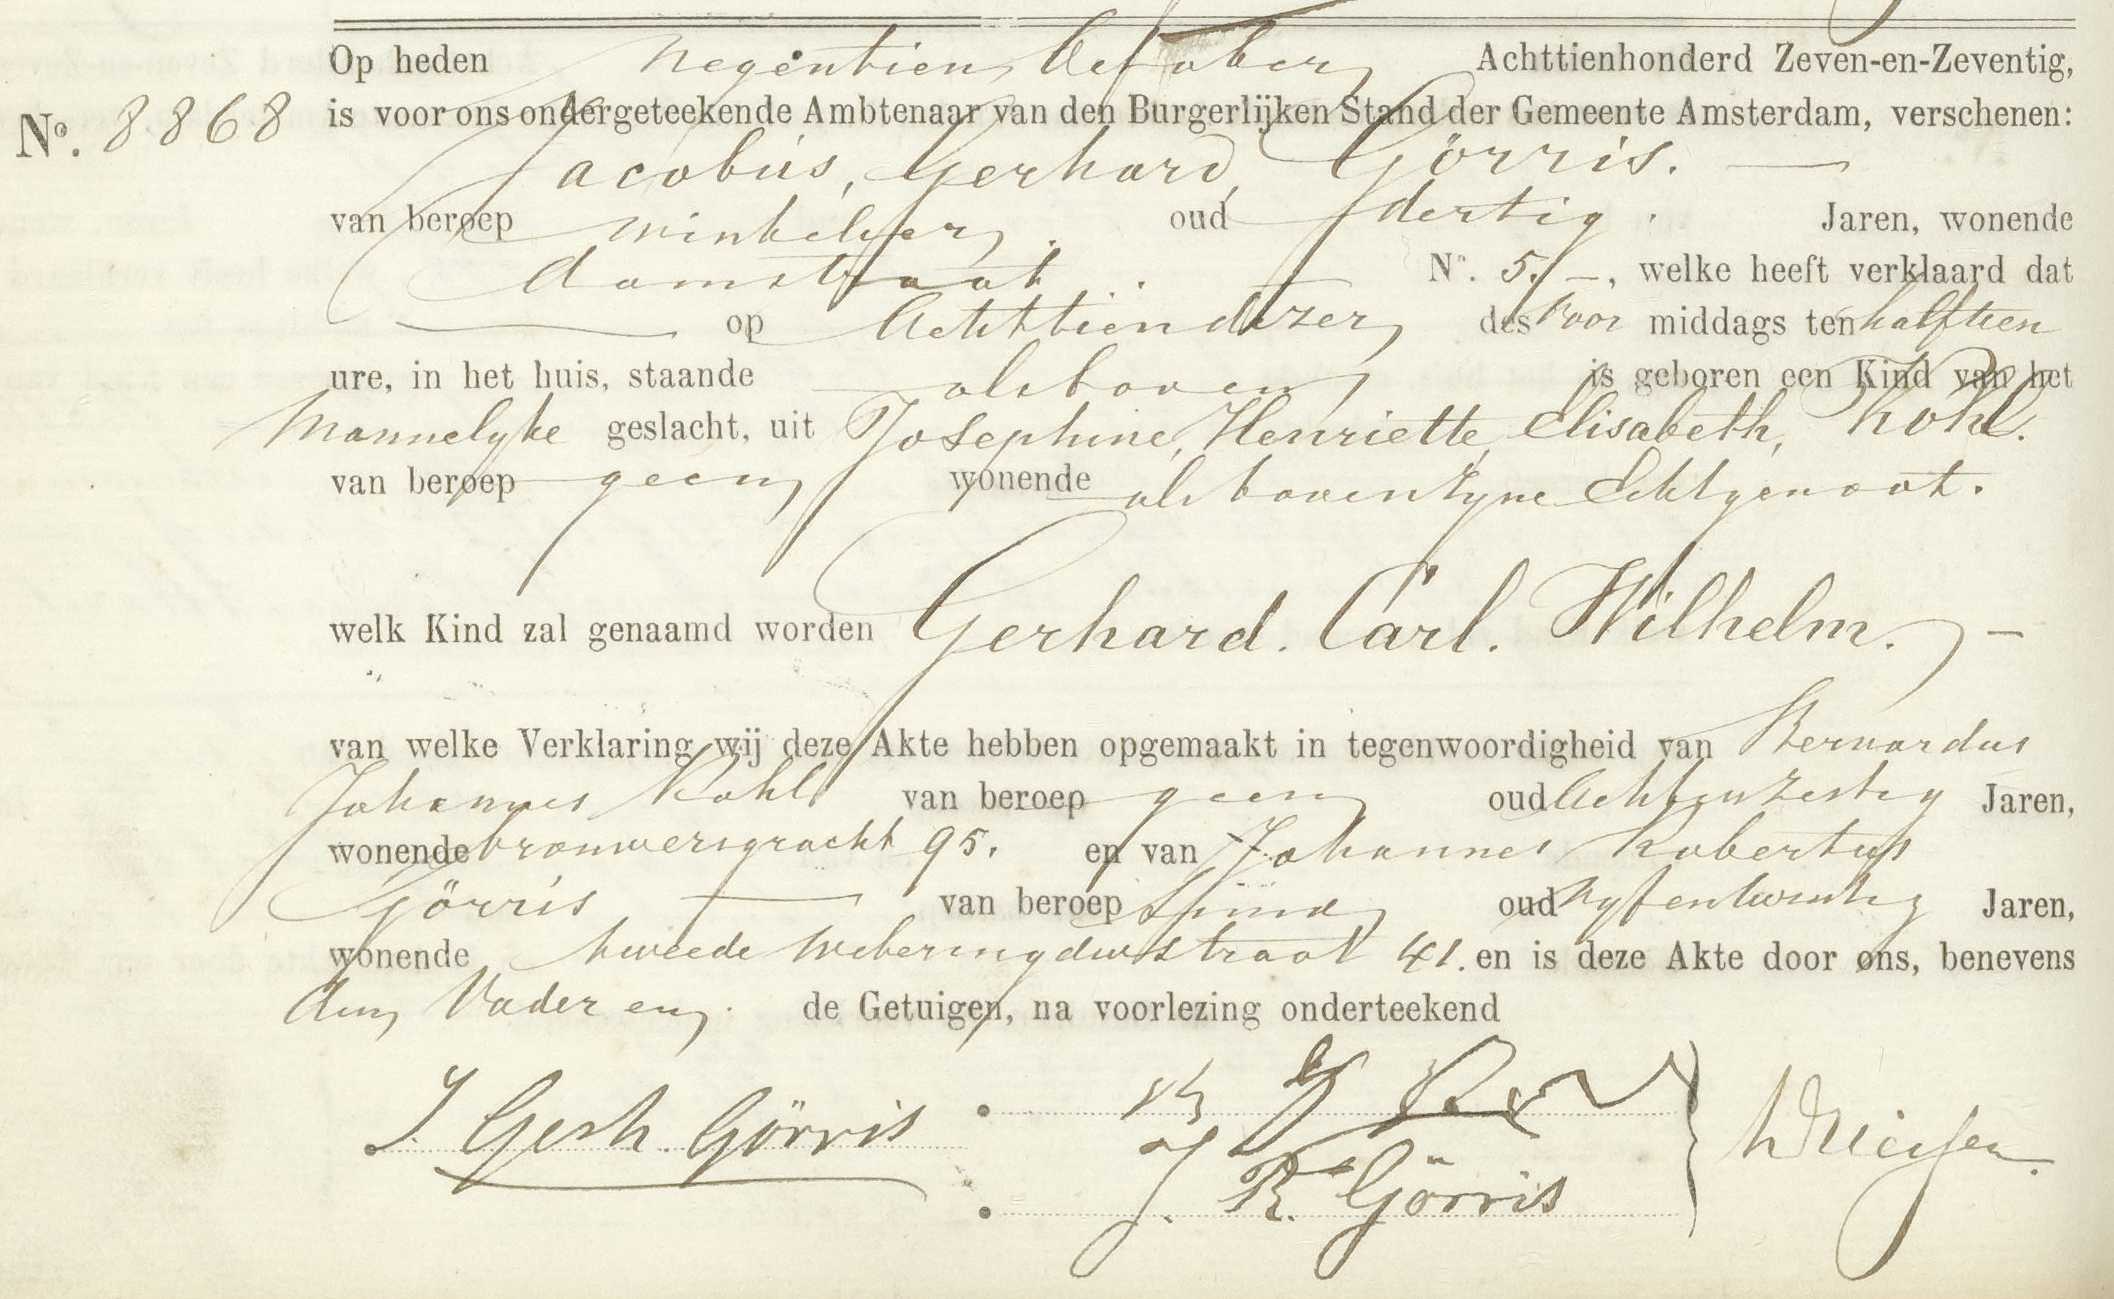 Op heden negentien October Achttienhonderd Zeven-en-Zeventig,
No. 8868 is voor ons ondergeteekende Ambtenaar van den Burgerlijken Stand der Gemeente Amsterdam, verschenen:
Jacobus, Gerhard, Görris. —
van beroep winkelier oud dertig Jaren, wonende
damstraat No. 5. —, welke heeft verklaard dat
— op Achttien dezer des voor middags ten half tien
ure, in het huis, staande als boven is geboren een Kind van het
Mannelyke geslacht, uit Josephine, Henriette, Elisabeth, Kohl.
van beroep geen wonende als boven zyne Echtgenoot.
welk Kind zal genaamd worden Gerhard. Carl. Wilhelm. —
van welke Verklaring wij deze Akte hebben opgemaakt in tegenwoordigheid van Bernardus
Johannes Kohl van beroep geen oud Achtenzestig Jaren,
wonende brouwersgracht 95. en van Johannes Robertus
Görris — van beroep oud vyfentwintig Jaren,
wonende tweede Weteringdwstraat 41. en is deze Akte door ons, benevens
den Vader en de Getuigen, na voorlezing onderteekend
J. Gerh. Görris
J. R. Görris